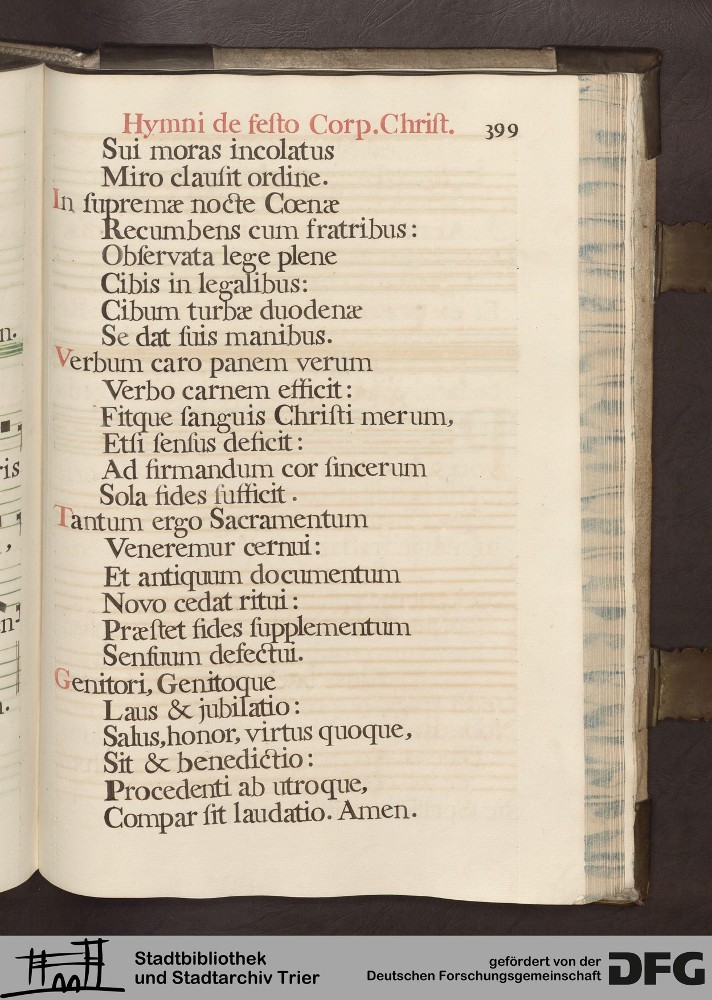 Hymni de feſto Corp.Chriſt. 399
Sui moras incolatus
Miro clauſit ordine.
In ſupremæ nocte Cœnæ
Recumbens cum fratribus:
Obſervata lege plene
Cibis in legalibus:
Cibum turbæ duodenæ
Se dat ſuis manibus.
Verbum caro panem verum
Verbo carnem efficit:
Fitque ſanguis Chriſti merum,
Etſi ſenſus deficit:
Ad firmandum cor ſincerum
Sola fides ſufficit.
Tantum ergo Sacramentum
Veneremur cernui:
Et antiquum documentum
Novo cedat ritui:
Præſtet fides ſupplementum
Senſuum defectui.
Genitori, Genitoque
Laus & jubilatio:
Salus,honor, virtus quoque,
Sit & benedictio:
Procedenti ab utroque,
Compar ſit laudatio. Amen.
n.
ris
,
n-
.
Stadtbibliothek
und Stadtarchiv Trier
gefördert von der
Deutschen Forschungsgemeinschaft
DFG